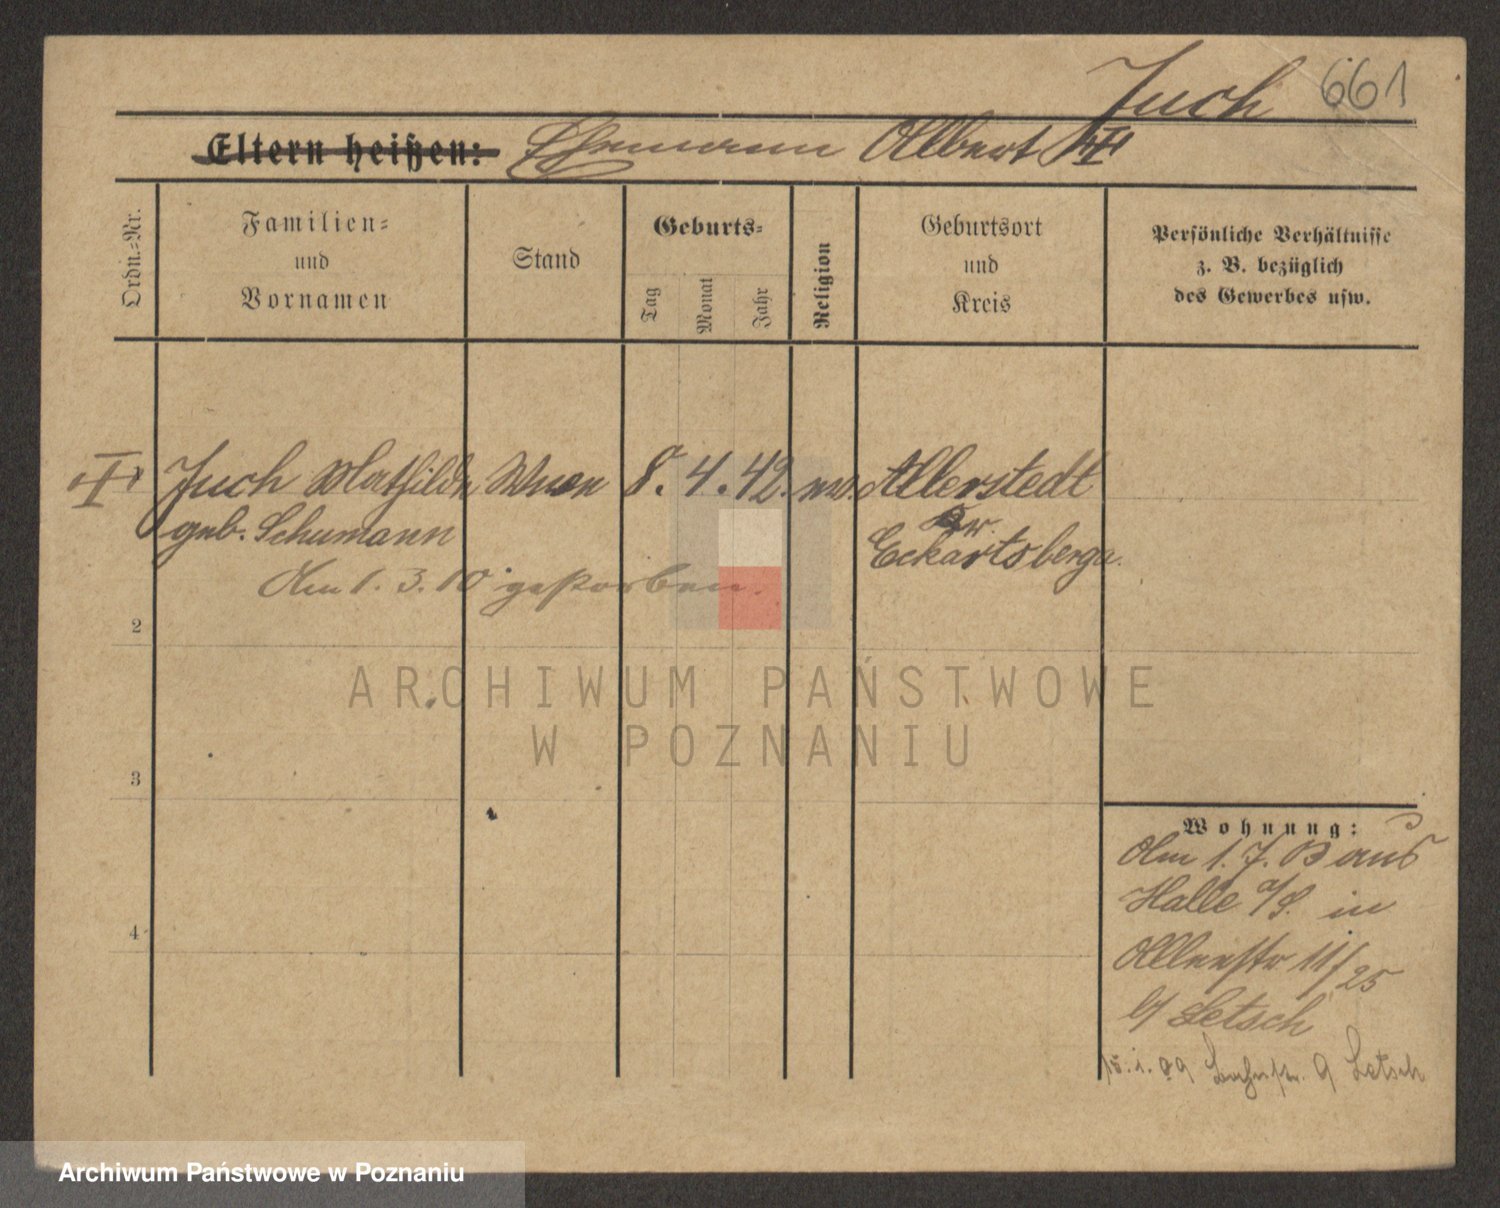 Juch 661
Eltern heißen: Ehemann Albert
Ordn.=Nr.
Familien=
und
Vornamen
Stand
Geburts=
Tag
Monat
Jahr
Religion
Geburtsort
und
Kreis
Persönliche Verhältnisse
z. B. bezüglich
des Gewerbes usw.
Juch Mathilde 8. 4. 42. Allerstedt
geb. Schumann Kr.
Eckartsberga.
Am 1. 3. 10 gestorben.
2
ARCHIWUM PAŃSTWOWE
W POZNANIU
3
4
Wohnung:
Am 1. 7. 08 aus
Halle a/S. in
Alleestr 11/25
b/ Letsch
15. 1. 09 Bahnstr. 9 Letsch
Archiwum Państwowe w Poznaniu